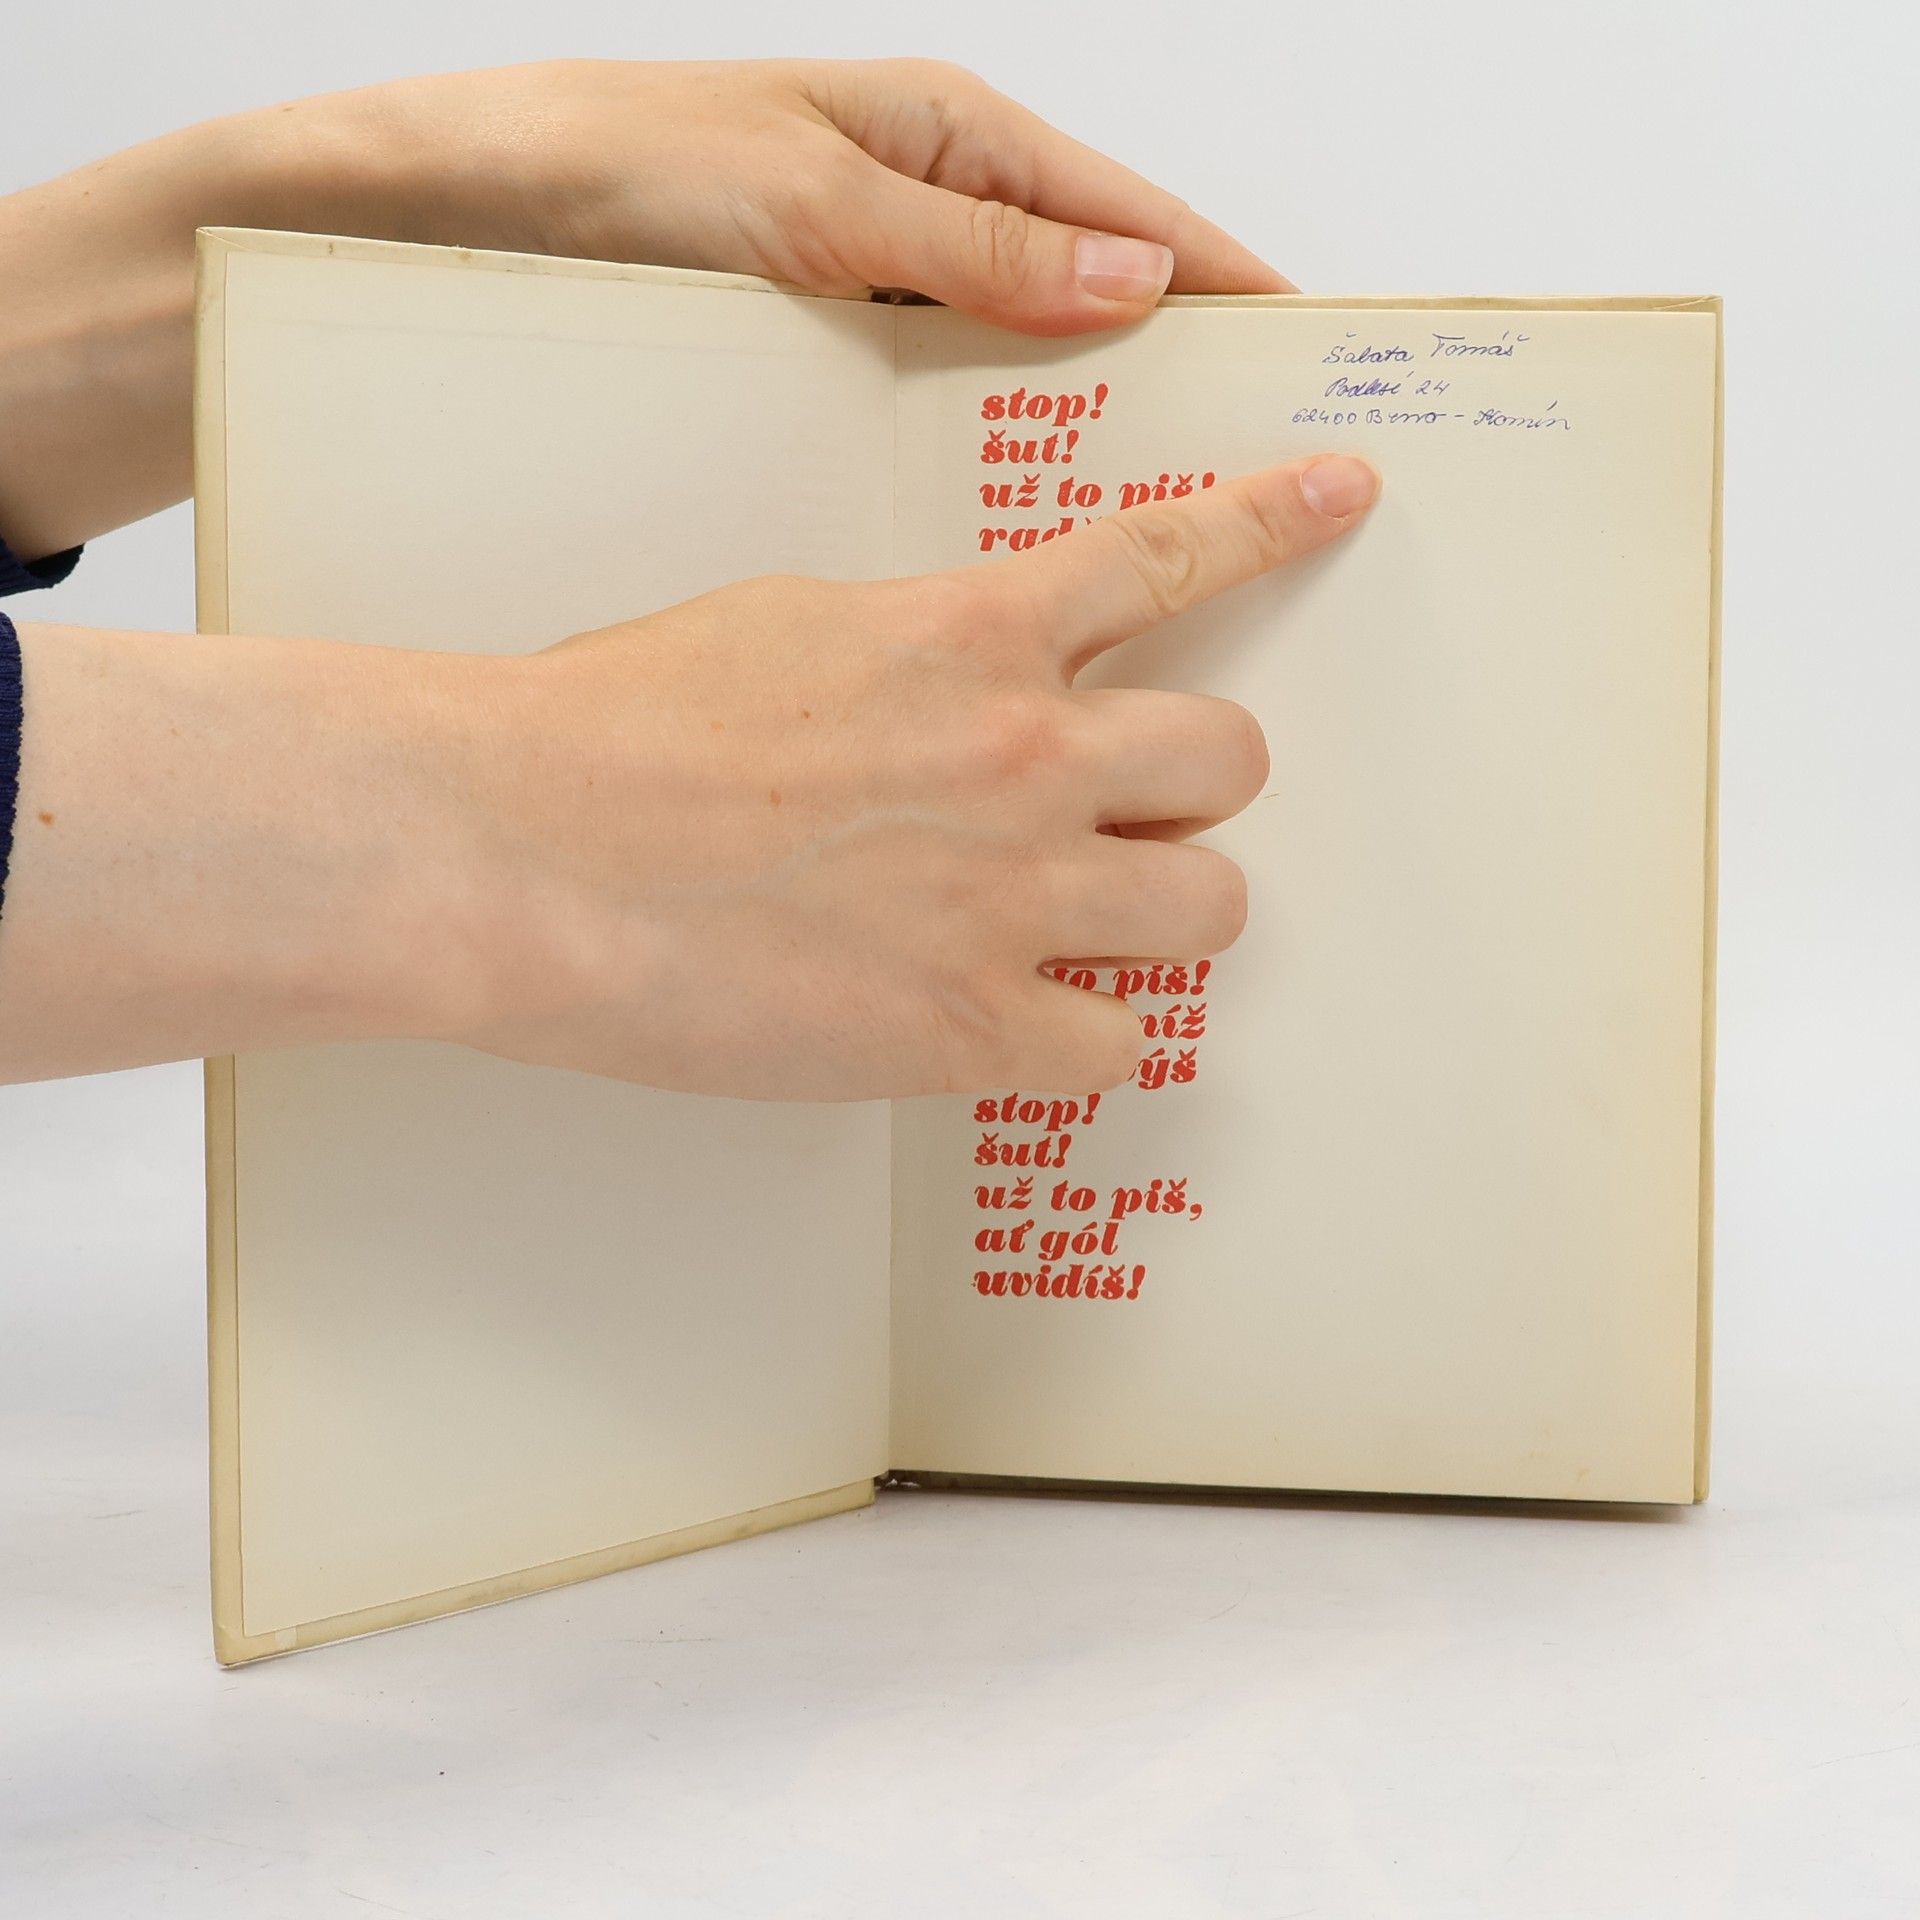 Šabata Tomáš
Podlesí 24
62400 Brno - Komín
stop!
šut!
už to piš!
to piš!
stop!
šut!
už to piš,
ať gól
uvidíš!